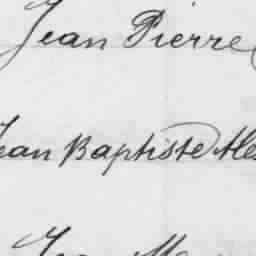 Jean Pierre
Jean Baptiste Ale
Jea